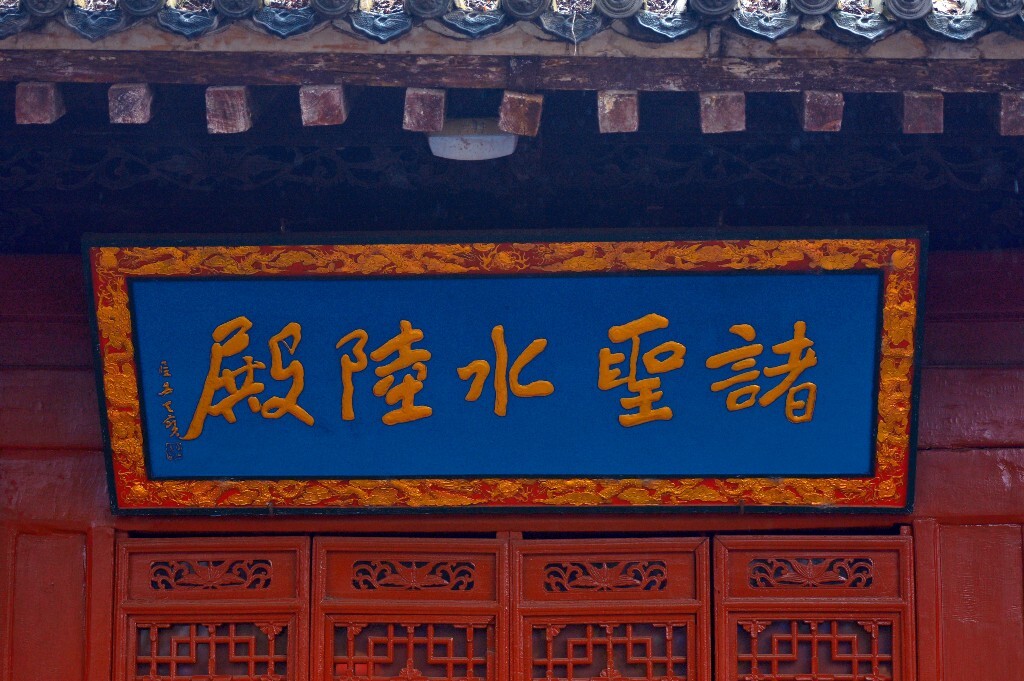 諸聖水陸殿